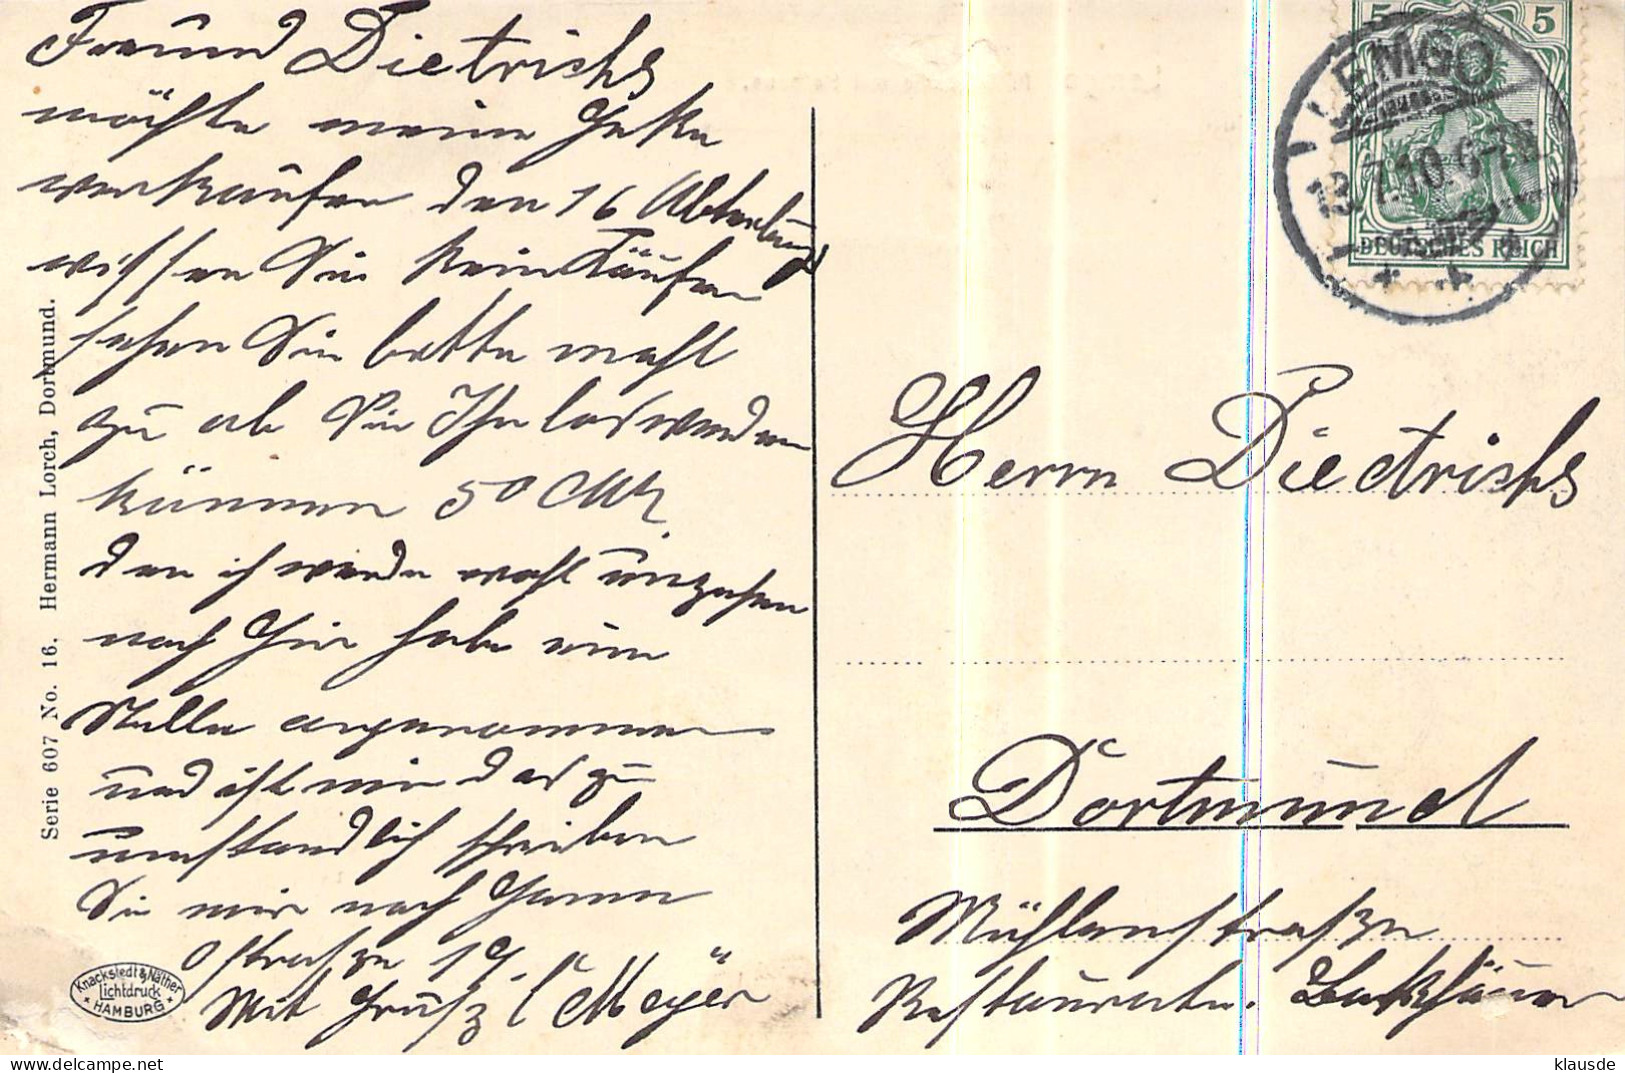 Freund Dietrichs
möchte meine Geke
verkaufen den 16 Abteilung
wissen Sie kein Käufer
sehen Sie bitte mahl
zu ob Sie Ihn los werden
können 50 Mk.
den ich werde wohl umzehen
nach hir habe eine
Stelle angenommen
und ist mir das zu
umständlich schreiben
Sie mir nach Hamm
Ostrasze 19.
Mit Grusz C Meyer
Serie 607 No. 16. Hermann Lorch, Dortmund.
Knackstedt & Näther
Lichtdruck
HAMBURG
5 5
DEUTSCHES REICH
LEMGO
13.7.10. 6-7
Herrn Dietrichs
Dortmund
Mühlenstrasze
Restaurate.
klausde